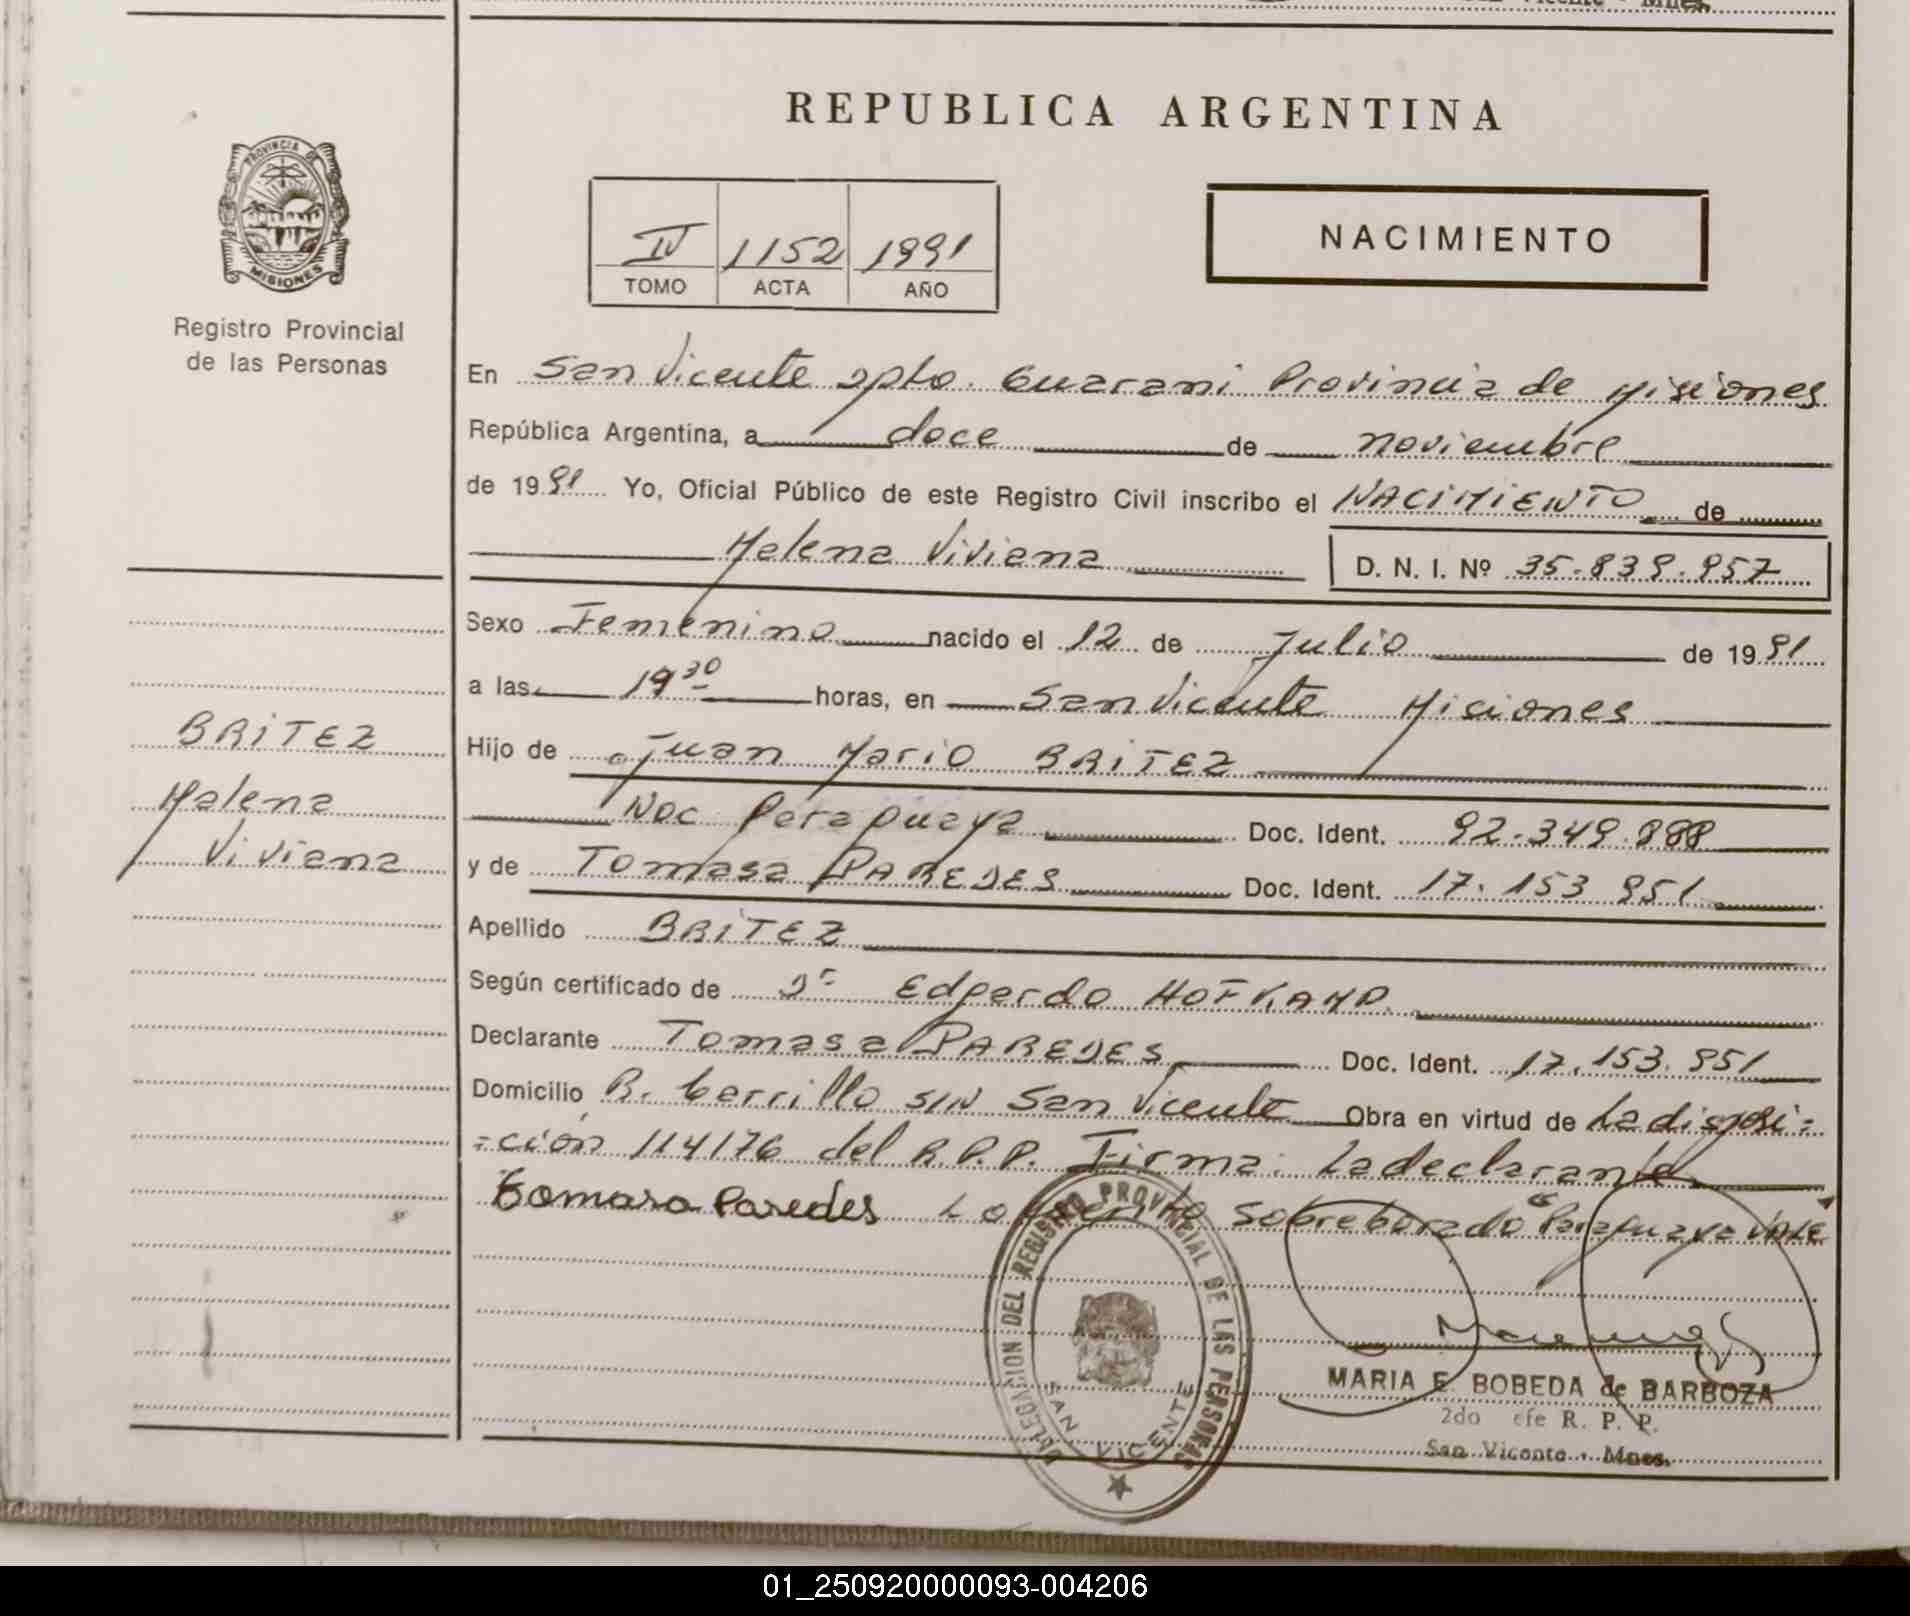 REPUBLICA ARGENTINA
PROVINCIA DE
MISIONES
Registro Provincial
de las Personas
IV 1152 1991
TOMO ACTA AÑO
NACIMIENTO
En San Vicente Dpto. Guarani Provincia de Misiones
República Argentina, a doce de noviembre
de 1991 Yo, Oficial Público de este Registro Civil inscribo el NACIMIENTO de
Malena Viviana D. N. I. Nº 35.839.957
Sexo Femenino nacido el 12 de Julio de 1991
a las 19 30 horas, en San Vicente Misiones
Hijo de Juan Mario BRITEZ
Nac. Paraguaya Doc. Ident. 92.349.888
y de Tomasa PAREDES Doc. Ident. 17.153 951
Apellido BRITEZ
Según certificado de Dr Edgardo
Declarante Tomasa PAREDES Doc. Ident. 17.153.951
Domicilio B. Cerrillo S/N San Vicente Obra en virtud de La disposi=
=ción 114/76 del R.P.P. Firma: La declarante
Tomasa Paredes Lo sobreborrado "Paraguaya VALE
BRITEZ
Malena
Viviana
DELEGACION DEL REGISTRO PROVINCIAL DE LAS PERSONAS
SAN VICENTE
MARIA E. BOBEDA de BARBOZA
2do efe R. P. P.
San Vicente - Mnes.
01_250920000093-004206